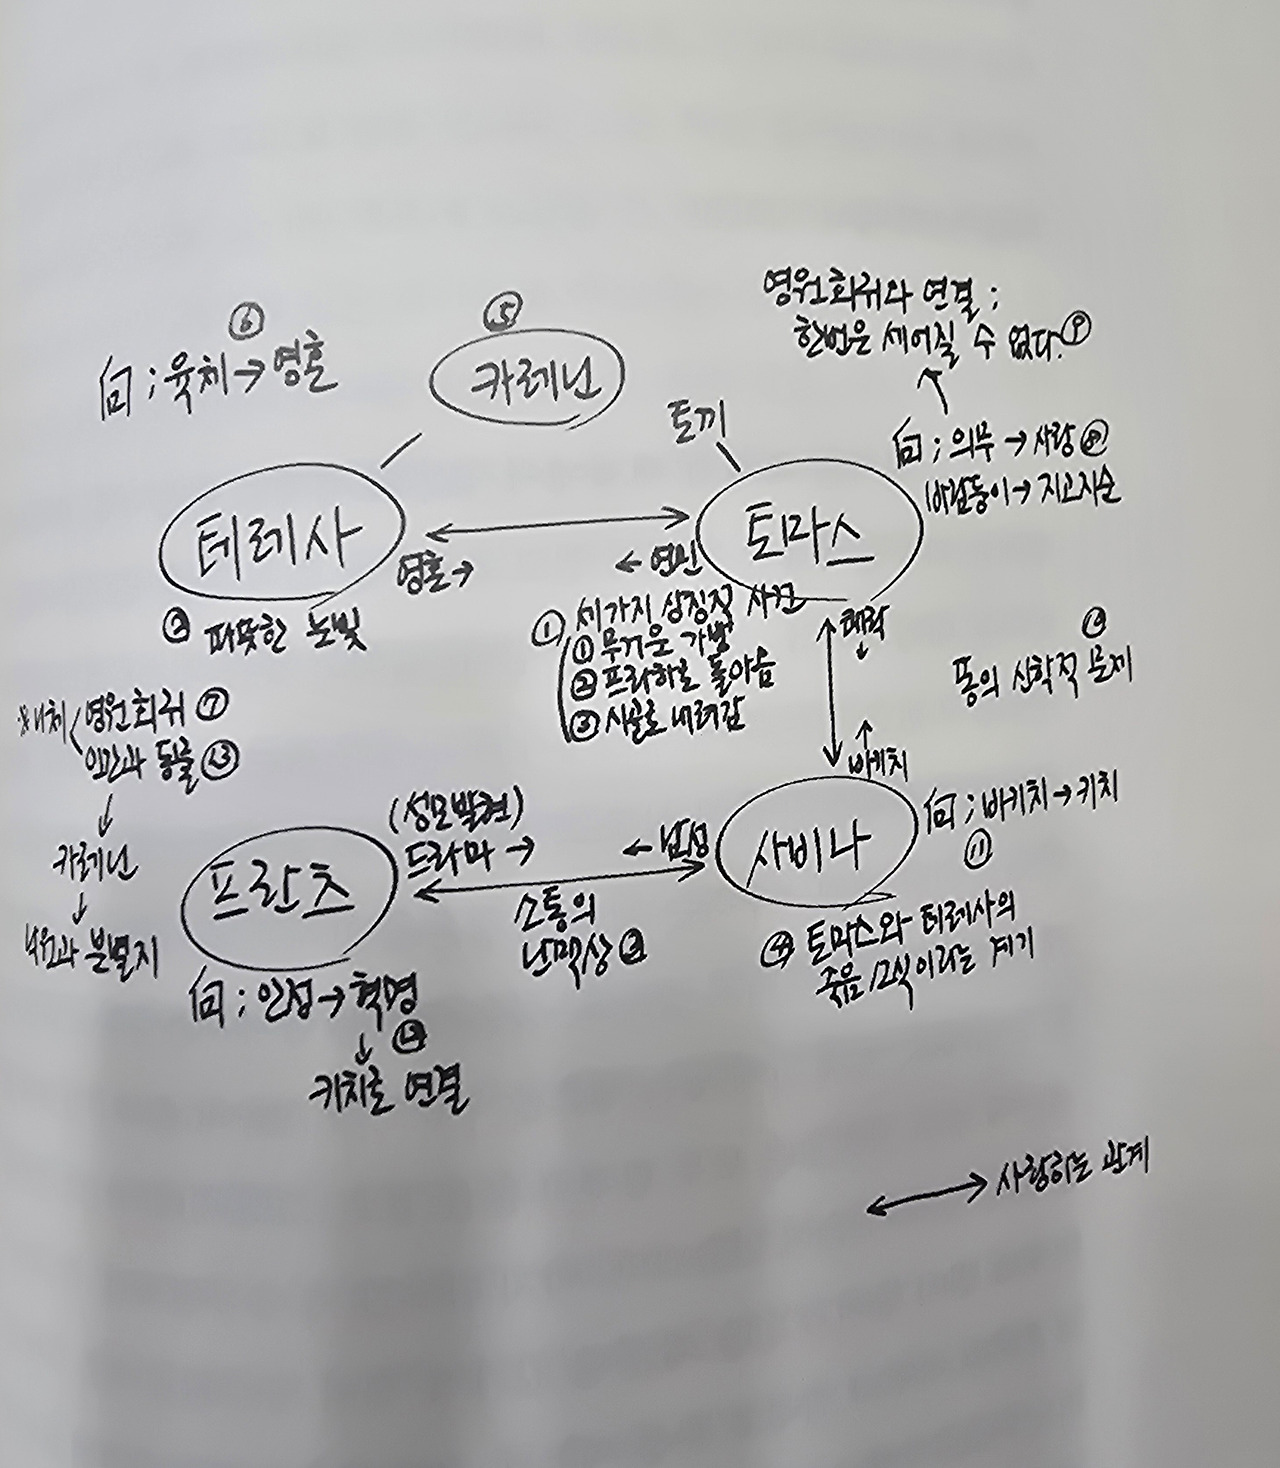 영원회귀와 연결;
한번은 세어질 수 없다. ⑨
⑥
向; 육체→영혼
⑤
카레닌
토끼
向; 의무→사랑 ⑧
바람둥이→지고지순
테레사
토마스
영혼→
←연민
② 따뜻한 눈빛
① 세가지 상징적 사건
① 무거운 가방
② 프라하로 돌아옴
③ 시골로 내려감
쾌락
↓
똥의 신학적 문제
영원회귀 ⑦
인간과 동물 ⑬
↓
카레닌
↓
낙원과 분별지
↑
반키치
(성모발현)
드라마→
←남성
프란츠
사비나
向; 반키치→키치
⑪
소통의
난맥상 ③
④ 토마스와 테레사의
죽음 소식이라는 계기
向; →혁명
↓
키치로 연결
↔ 사랑하는 관계